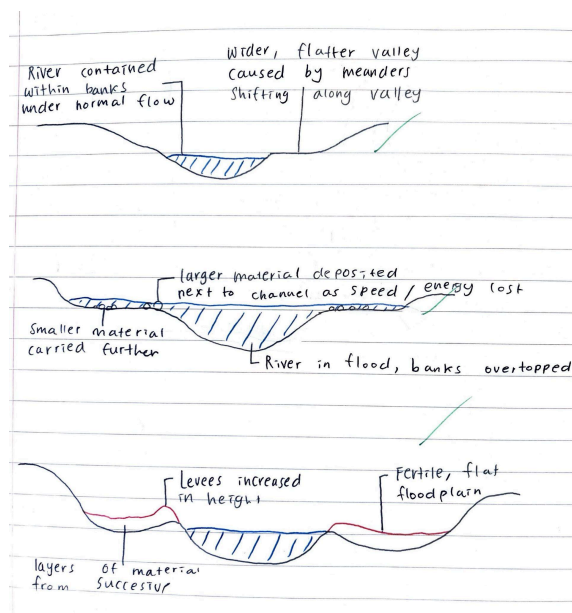 River contained
within banks
under normal flow
Wider, flatter valley
caused by meanders
shifting along valley
larger material deposited
next to channel as speed / energy lost
Smaller material
carried further
River in flood, banks overtopped
Levees increased
in height
Fertile, flat
floodplain
layers of material
from successive